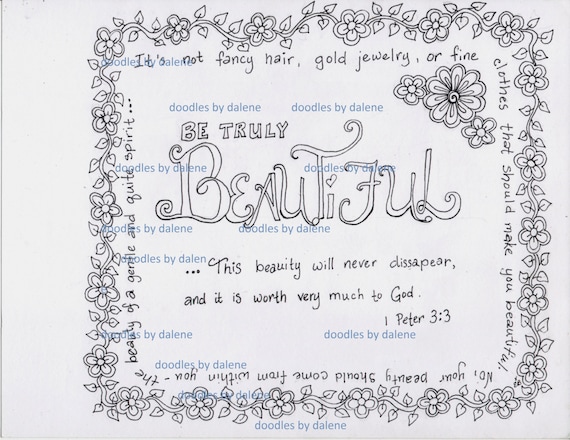 It's not fancy hair, gold jewelry, or fine
clothes that should make you beautiful.
No, your beauty should come from within you - the
beauty of a gentle and quite spirit...
BE TRULY
BEAUTIFUL
...This beauity will never dissapear,
and it is worth very much to God.
1 Peter 3:3
doodles by dalene
doodles by dalene
doodles by dalene
doodles by dalene
doodles by dalene
doodles by dalene
doodles by dalene
doodles by dalen
doodles by dalene
doodles by dalene
doodles by dalene
doodles by dalene
doodles by dalene